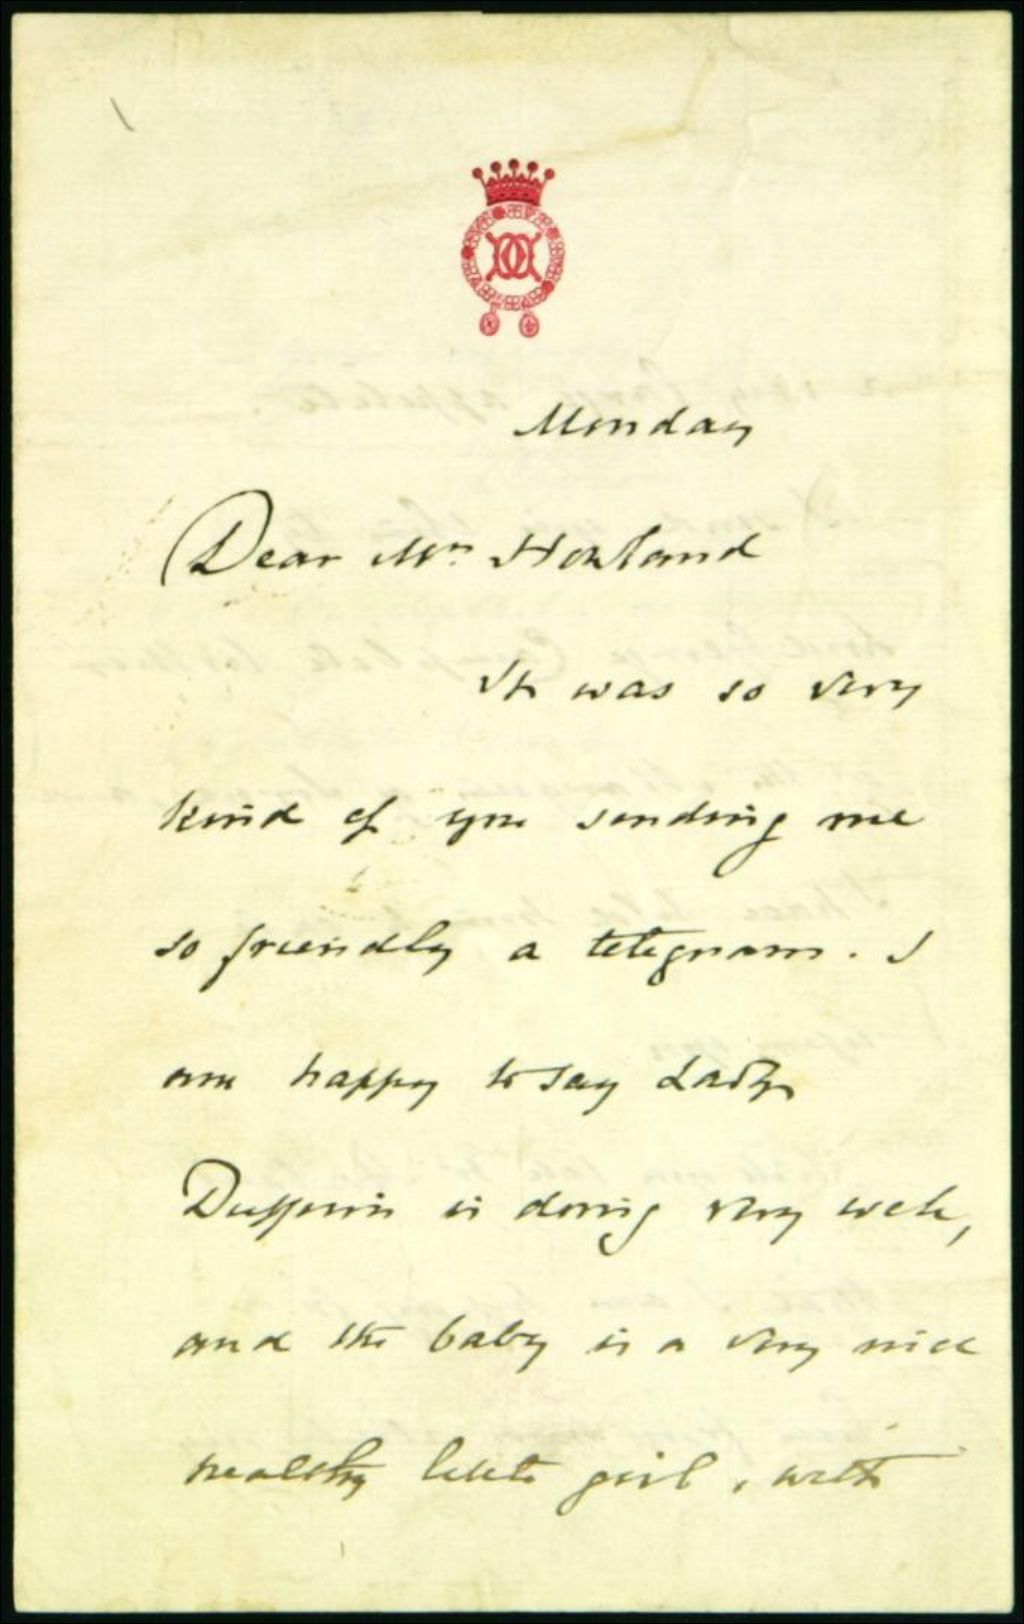 Monday
Dear Mrs Howland
It was so very
kind of you sending me
so friendly a telegram. I
am happy to say Lady
Dufferin is doing very well,
and the baby is a very nice
healthy little girl, with